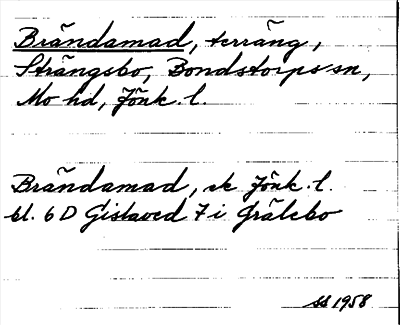 Brändamad, terräng,
Strängsbo, Bondstorps sn,
Mo hd, Jönk. l.
Brändamad, ek Jönk. l.
bl. 6 D Gislaved 7 i Grälebo
SS 1958